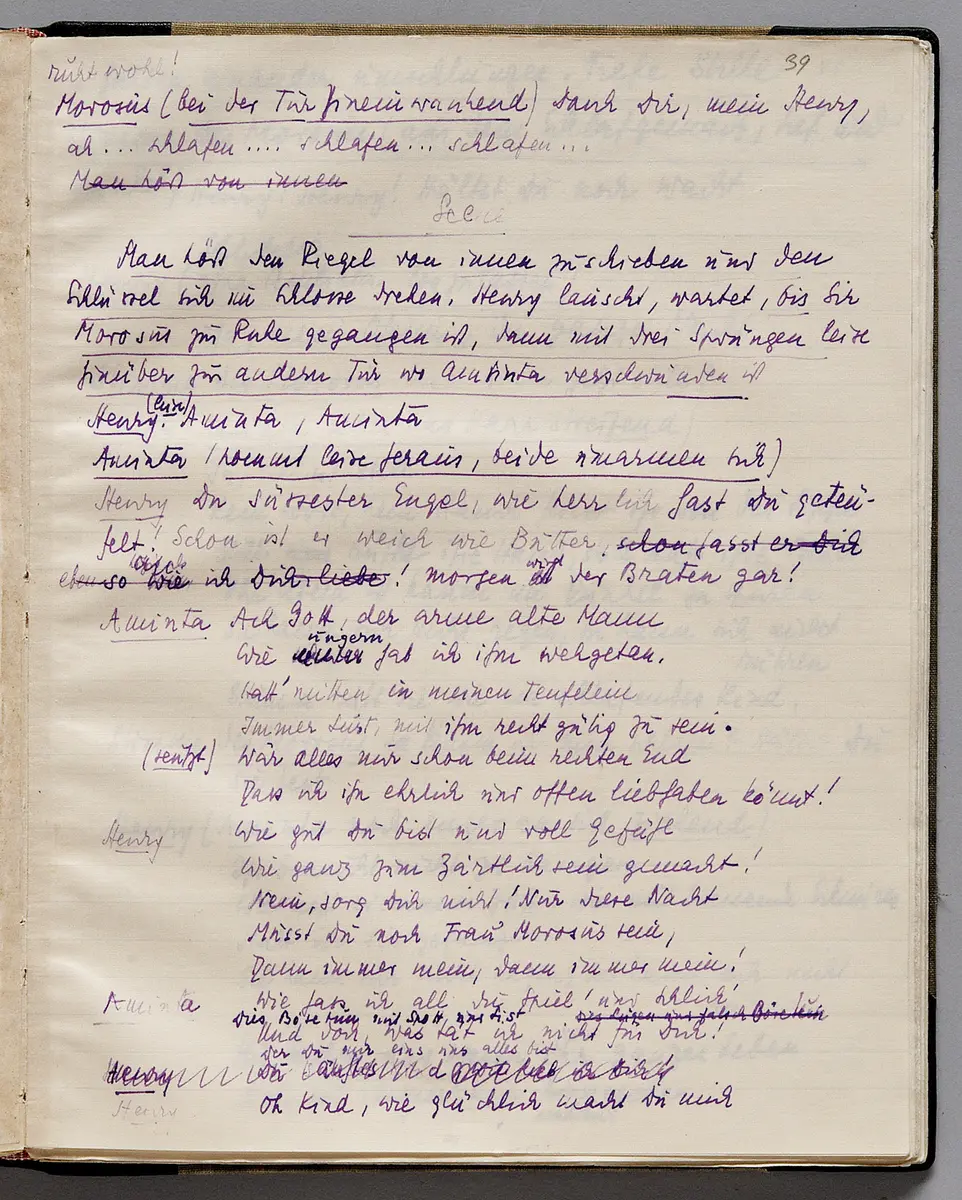 39
ruht wohl!
Morosus (bei der Tür hineinwankend) Dank Dir, mein Henry,
ah... schlafen.... schlafen... schlafen...
Man hört von innen
Scene
Man hört den Riegel von innen zuschieben und den
Schlüssel sich im Schlosse drehen. Henry lauscht, wartet, bis Sir
Morosus zur Ruhe gegangen ist, dann mit drei Sprüngen leise
hinüber zur andern Tür wo Aminta verschwunden ist
Henry (leise): Aminta, Aminta
Aminta (kommt leise heraus, beide umarmen sich)
Henry Du süssester Engel, wie herrlich hast Du geteu-
felt! Schon ist er weich wie Butter, schon hasst er Dich
ebenso wie ich Dich liebe! morgen wird der Braten gar!
Aminta Ach Gott, der arme alte Mann
Wie ungern hab ich ihm wehgetan.
Hatt' mitten in meinen Teufelein
Immer Lust, mit ihm recht gütig zu sein.
(seufzt) Wär alles nur schon beim rechten End
Dass ich ihn ehrlich und offen liebhaben könnt!
Henry Wie gut Du bist und voll Gefühl
Wie ganz zum Zärtlichsein gemacht!
Nein, sorg Dich nicht! Nur diese Nacht
Musst Du noch Frau Morosus sein,
Dann immer mein, dann immer mein!
Aminta Wie hass ich all dies Spiel!
Dies Bösetun mit Spott und List
Und doch, was tät ich nicht für Dich!
der Du mir eins und alles bist
Henry
Henry Oh Kind, wie glücklich machst Du mich